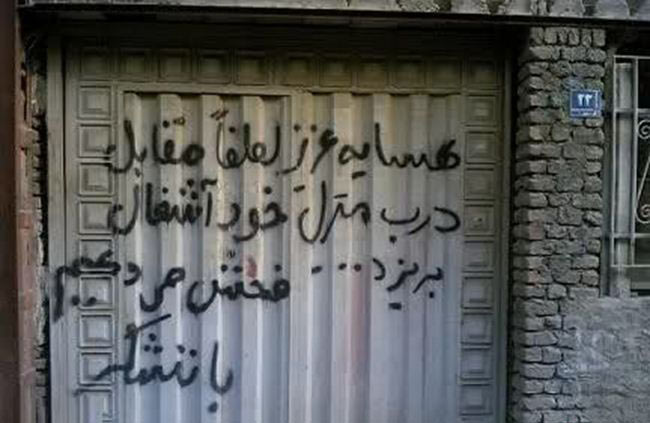 همسایه عزیز لطفاً مقابل
درب منزل خود آشغال
بریزد.... فحش می دهیم
با تشکر
۲۳